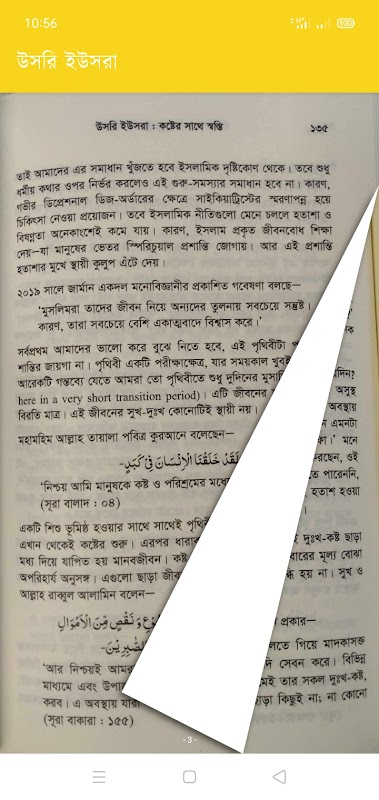 10:56
উসরি ইউসরা
উসরি ইউসরা : কষ্টের সাথে স্বস্তি ১৩৫
তাই আমাদের এর সমাধান খুঁজতে হবে ইসলামিক দৃষ্টিকোণ থেকে। তবে শুধু
ধর্মীয় কথার ওপর নির্ভর করলেও এই গুরু-সমস্যার সমাধান হবে না। কারণ,
গভীর ডিপ্রেশনাল ডিজ-অর্ডারের ক্ষেত্রে সাইকিয়াট্রিস্টের স্মরণাপন্ন হয়ে
চিকিৎসা নেওয়া প্রয়োজন। তবে ইসলামিক নীতিগুলো মেনে চললে হতাশা ও
বিষণ্ণতা অনেকাংশেই কমে যায়। কারণ, ইসলাম প্রকৃত জীবনবোধ শিক্ষা
দেয়—যা মানুষের ভেতর স্পিরিচুয়াল প্রশান্তি জোগায়। আর এই প্রশান্তি
হতাশার মুখে স্থায়ী কুলুপ এঁটে দেয়।
২০১৯ সালে জার্মান একদল মনোবিজ্ঞানীর প্রকাশিত গবেষণা বলছে—
'মুসলিমরা তাদের জীবন নিয়ে অন্যদের তুলনায় সবচেয়ে সন্তুষ্ট।
কারণ, তারা সবচেয়ে বেশি একাত্ববাদে বিশ্বাস করে।'
সর্বপ্রথম আমাদের ভালো করে বুঝে নিতে হবে, এই পৃথিবীটা
শান্তির জায়গা না। পৃথিবী একটি পরীক্ষাক্ষেত্র, যার সময়কাল খুবই
আরেকটি গন্তব্যে যেতে আমরা তো পৃথিবীতে শুধু দুদিনের দিন?
here in a very short transition period)। এটি জীবনের অসুস্থ
বিরতি মাত্র। এই জীবনের সুখ-দুঃখ কোনোটিই স্থায়ী নয়। অবস্থায়
ন এমনটা
মহামহিম আল্লাহ তায়ালা পবিত্র কুরআনে বলেছেন— ফা।' মনে
لَقَدْ خَلَقْنَا الْإِنْسَانَ فِيْ كَبَدٍ- রছেন, ওই
তে পারেননি,
'নিশ্চয় আমি মানুষকে কষ্ট ও পরিশ্রমের হতাশ হওয়া
(সূরা বালাদ : ০৪)
একটি শিশু ভূমিষ্ঠ হওয়ার সাথে সাথেই দুঃখ-কষ্ট ছাড়া
এখান থেকেই কষ্টের শুরু। এরপর ধারের মূল্য বোঝা
মধ্য দিয়ে যাপিত হয় মানবজীবন। কষ্ট হয় না। সুখ ও
অপরিহার্য অনুসঙ্গ। এগুলো ছাড়া
আল্লাহ রাব্বুল আলামিন বলেন—
وَنَقْصٍ مِّنَ الْأَمْوَالِ ন প্রকার—
الصّٰبِرِيْنَ- লতে গিয়ে মাদকাসক্ত
দি সেবন করে। বিভিন্ন
'আর নিশ্চয়ই মেই তার সকল দুঃখ-কষ্ট,
মাধ্যমে এবং ড়া কিছুই না; না কোনো
করব। এ অবস্থায়
(সূরা বাকারা : ১৫৫)
-3-